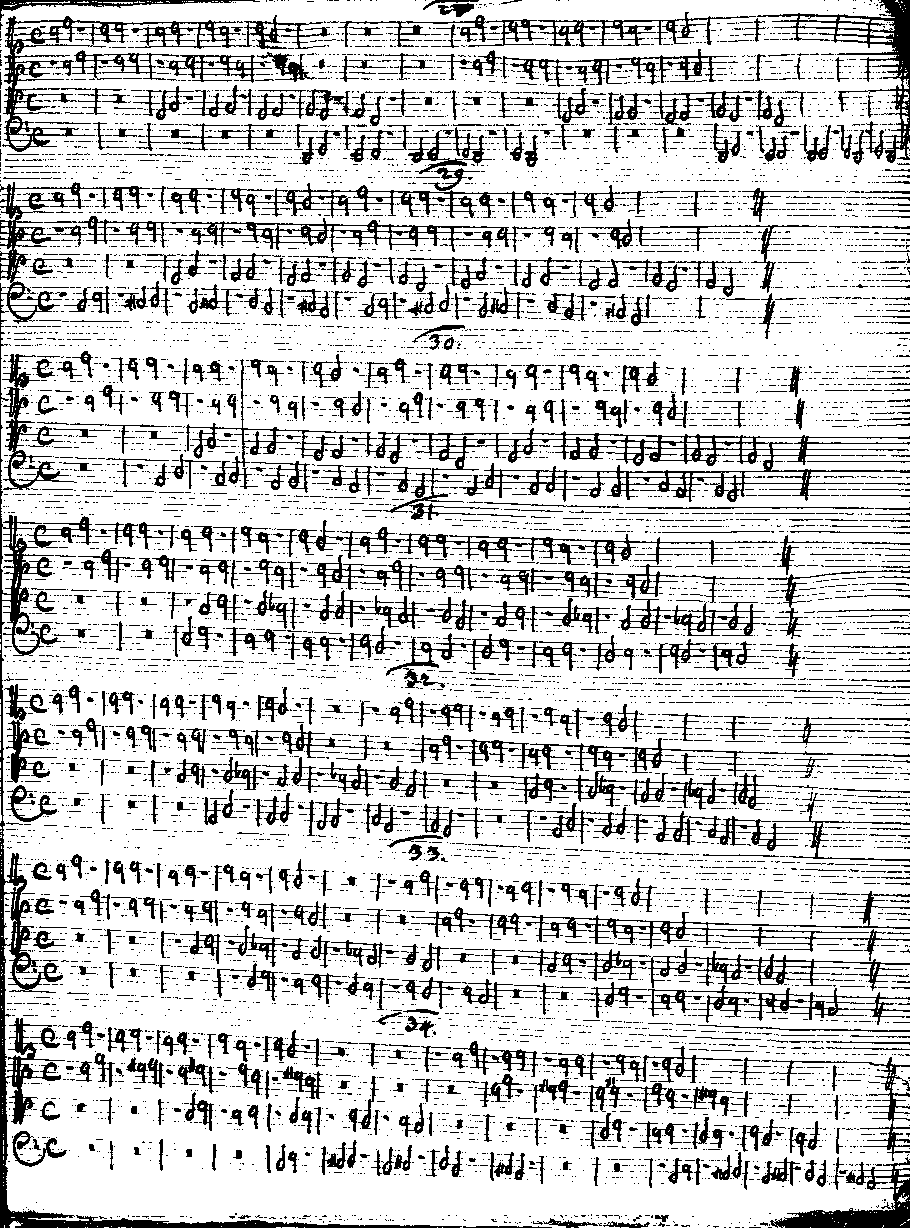 29
30.
31.
32.
33.
34.